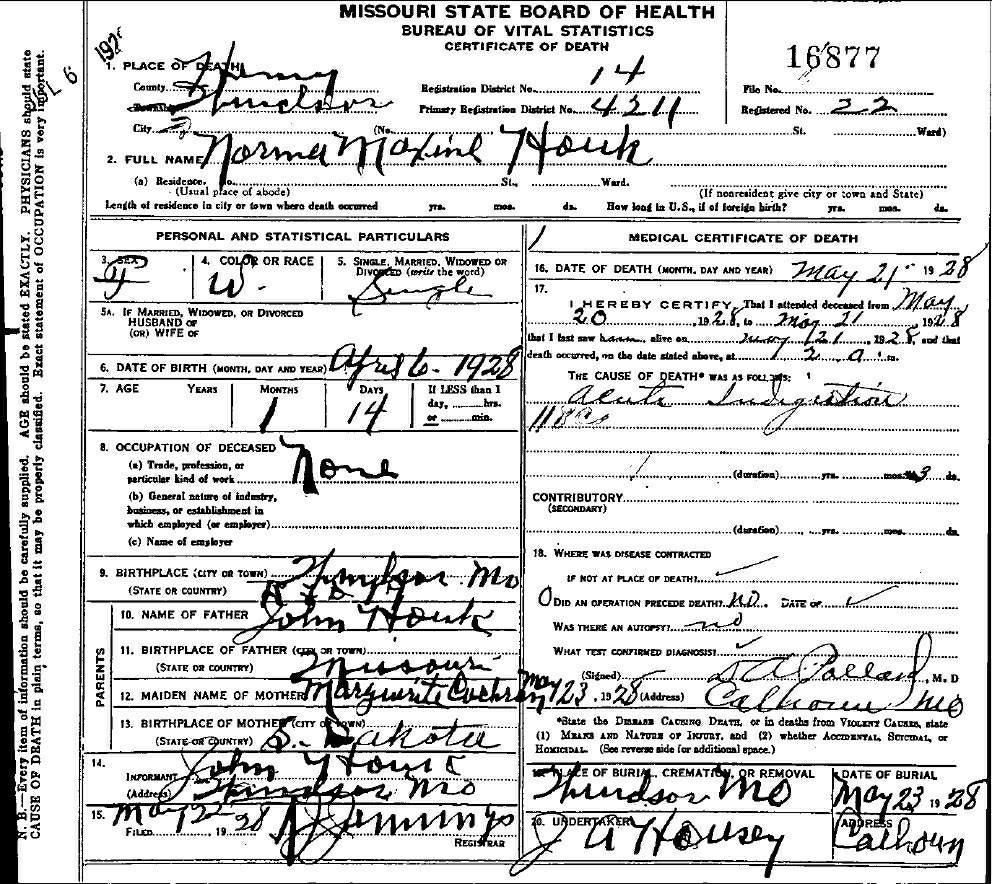 MISSOURI STATE BOARD OF HEALTH
BUREAU OF VITAL STATISTICS
CERTIFICATE OF DEATH
16877
1. PLACE OF DEATH
County Henry
Township Windsor
City
Registration District No. 14
Primary Registration District No. 4211
File No.
Registered No. 22
(No. St. Ward)
2. FULL NAME Norma Maxine Houk
(a) Residence. No. St., Ward.
(Usual place of abode) (If nonresident give city or town and State)
Length of residence in city or town where death occurred yrs. mos. ds. How long in U.S., if of foreign birth? yrs. mos. ds.
PERSONAL AND STATISTICAL PARTICULARS
3. SEX F
4. COLOR OR RACE W.
5. SINGLE, MARRIED, WIDOWED OR DIVORCED (write the word) Single
5A. IF MARRIED, WIDOWED, OR DIVORCED
HUSBAND OF
(OR) WIFE OF
6. DATE OF BIRTH (MONTH, DAY AND YEAR) April 6 - 1928
7. AGE YEARS MONTHS 1 DAYS 14 If LESS than 1 day, hrs. or min.
8. OCCUPATION OF DECEASED None
(a) Trade, profession, or
particular kind of work
(b) General nature of industry,
business, or establishment in
which employed (or employer)
(c) Name of employer
9. BIRTHPLACE (CITY OR TOWN) Windsor Mo
(STATE OR COUNTRY)
PARENTS
10. NAME OF FATHER John Houk
11. BIRTHPLACE OF FATHER (CITY OR TOWN)
(STATE OR COUNTRY) Missouri
12. MAIDEN NAME OF MOTHER Marguerite Cochran
13. BIRTHPLACE OF MOTHER (CITY OR TOWN)
(STATE OR COUNTRY) S. Dakota
14. INFORMANT John Houk
(Address) Windsor Mo
15. FILED May 22 - 1928 Jennings
REGISTRAR
MEDICAL CERTIFICATE OF DEATH
16. DATE OF DEATH (MONTH, DAY AND YEAR) May 21 1928
17.
I HEREBY CERTIFY, That I attended deceased from May
20, 1928, to May 21, 1928
that I last saw alive on May 21, 1928, and that
death occurred, on the date stated above, at 12 a m.
THE CAUSE OF DEATH* WAS AS FOLLOWS:
Acute Indigestion
(duration) yrs. mos. 3 ds.
CONTRIBUTORY
(SECONDARY)
(duration) yrs. mos. ds.
18. WHERE WAS DISEASE CONTRACTED
IF NOT AT PLACE OF DEATH?
DID AN OPERATION PRECEDE DEATH? No. DATE OF
WAS THERE AN AUTOPSY? no
WHAT TEST CONFIRMED DIAGNOSIS?
(Signed) Pollard, M. D
May 23, 1928 (Address) Calhoun Mo
*State the DISEASE CAUSING DEATH, or in deaths from VIOLENT CAUSES, state
(1) MEANS AND NATURE OF INJURY, and (2) whether ACCIDENTAL, SUICIDAL, or
HOMICIDAL. (See reverse side for additional space.)
19. PLACE OF BURIAL, CREMATION, OR REMOVAL
Windsor Mo
DATE OF BURIAL
May 23 1928
20. UNDERTAKER
J A Housey
ADDRESS
Calhoun
N. B.—Every item of information should be carefully supplied. AGE should be stated EXACTLY. PHYSICIANS should state
CAUSE OF DEATH in plain terms, so that it may be properly classified. Exact statement of OCCUPATION is very important.